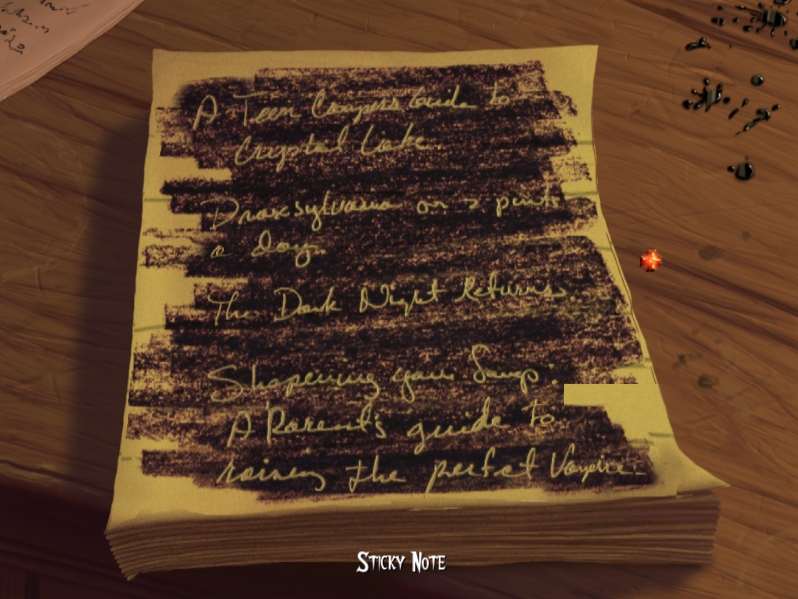 A Teen Campers Guide to
Crystal Lake.
Draxsylvania on 2 pints
a day.
The Dark Night Returns.
Sharpening your Lamp:
A Parent's guide to
raising the perfect Vampire.
Sticky Note